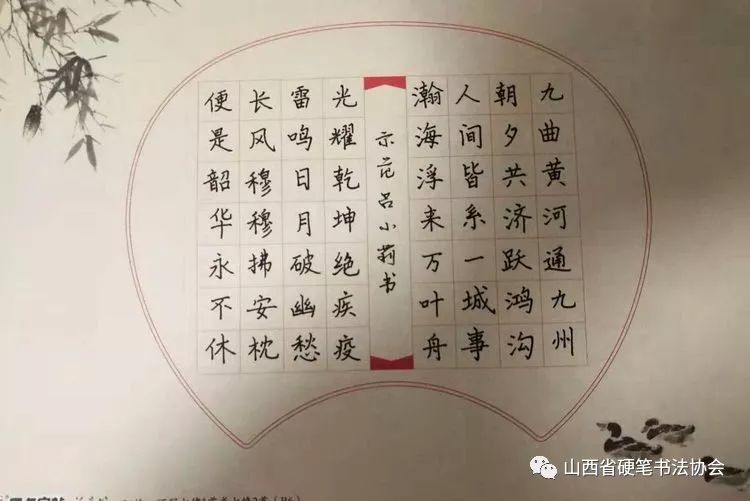 九曲黄河通九州
朝夕共济跃鸿沟
人间皆系一城事
瀚海浮来万叶舟
示范吕小莉书
光耀乾坤绝疾疫
雷鸣日月破幽愁
长风穆穆拂安枕
便是韶华永不休
山西省硬笔书法协会